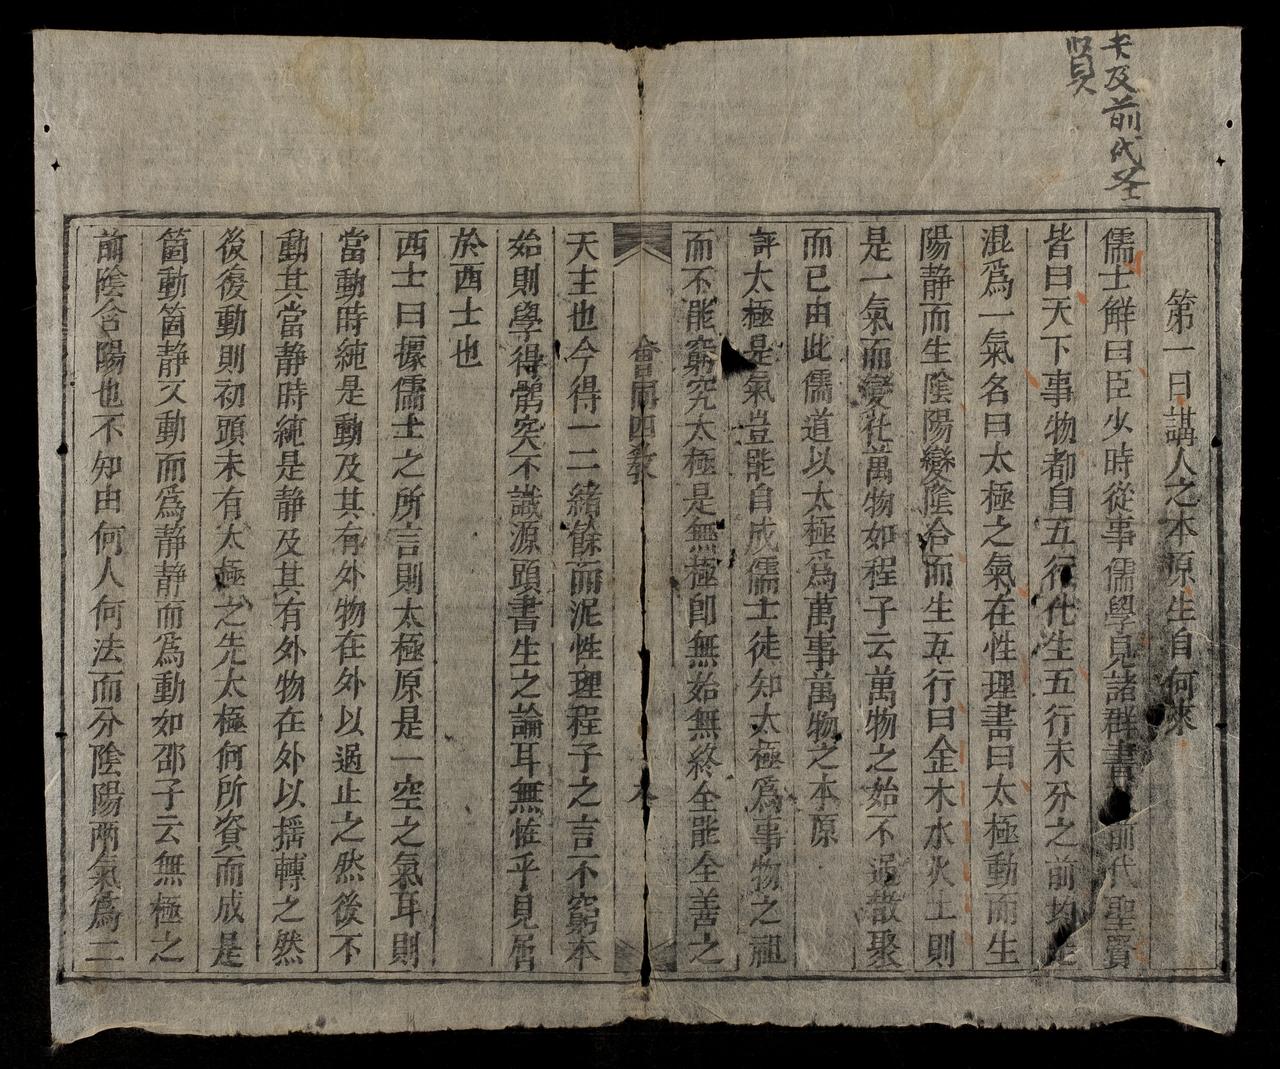 夫及前代圣
賢
第一日講人之本原生自何來
儒士鮮曰臣少時從事儒學見諸群書前代聖賢
皆曰天下事物都自五行化生五行未分之前均是
混爲一氣名曰太極之氣在性理書曰太極動而生
陽静而生陰陽變陰合而生五行曰金木水火土則
是一氣而變化萬物如程子云萬物之始不過散聚
而已由此儒道以太極爲萬事萬物之本原
評太極是氣豈能自成儒士徒知太極爲事物之祖
而不能窮究太極是無極即無始無終全能全善之
會同四教
本
天主也今得一二緒餘而泥性理程子之言不窮本
始則學得鶻突不識源頭書生之論耳無恠乎見居
於西士也
西士曰據儒士之所言則太極原是一空之氣耳則
當動時純是動及其有外物在外以遏止之然後不
動其當静時純是静及其有外物在外以揺轉之然
後復動則初頭未有太極之先太極何所資而成是
箇動箇静又動而爲静静而爲動如邵子云無極之
前陰含陽也不知由何人何法而分陰陽两氣爲二